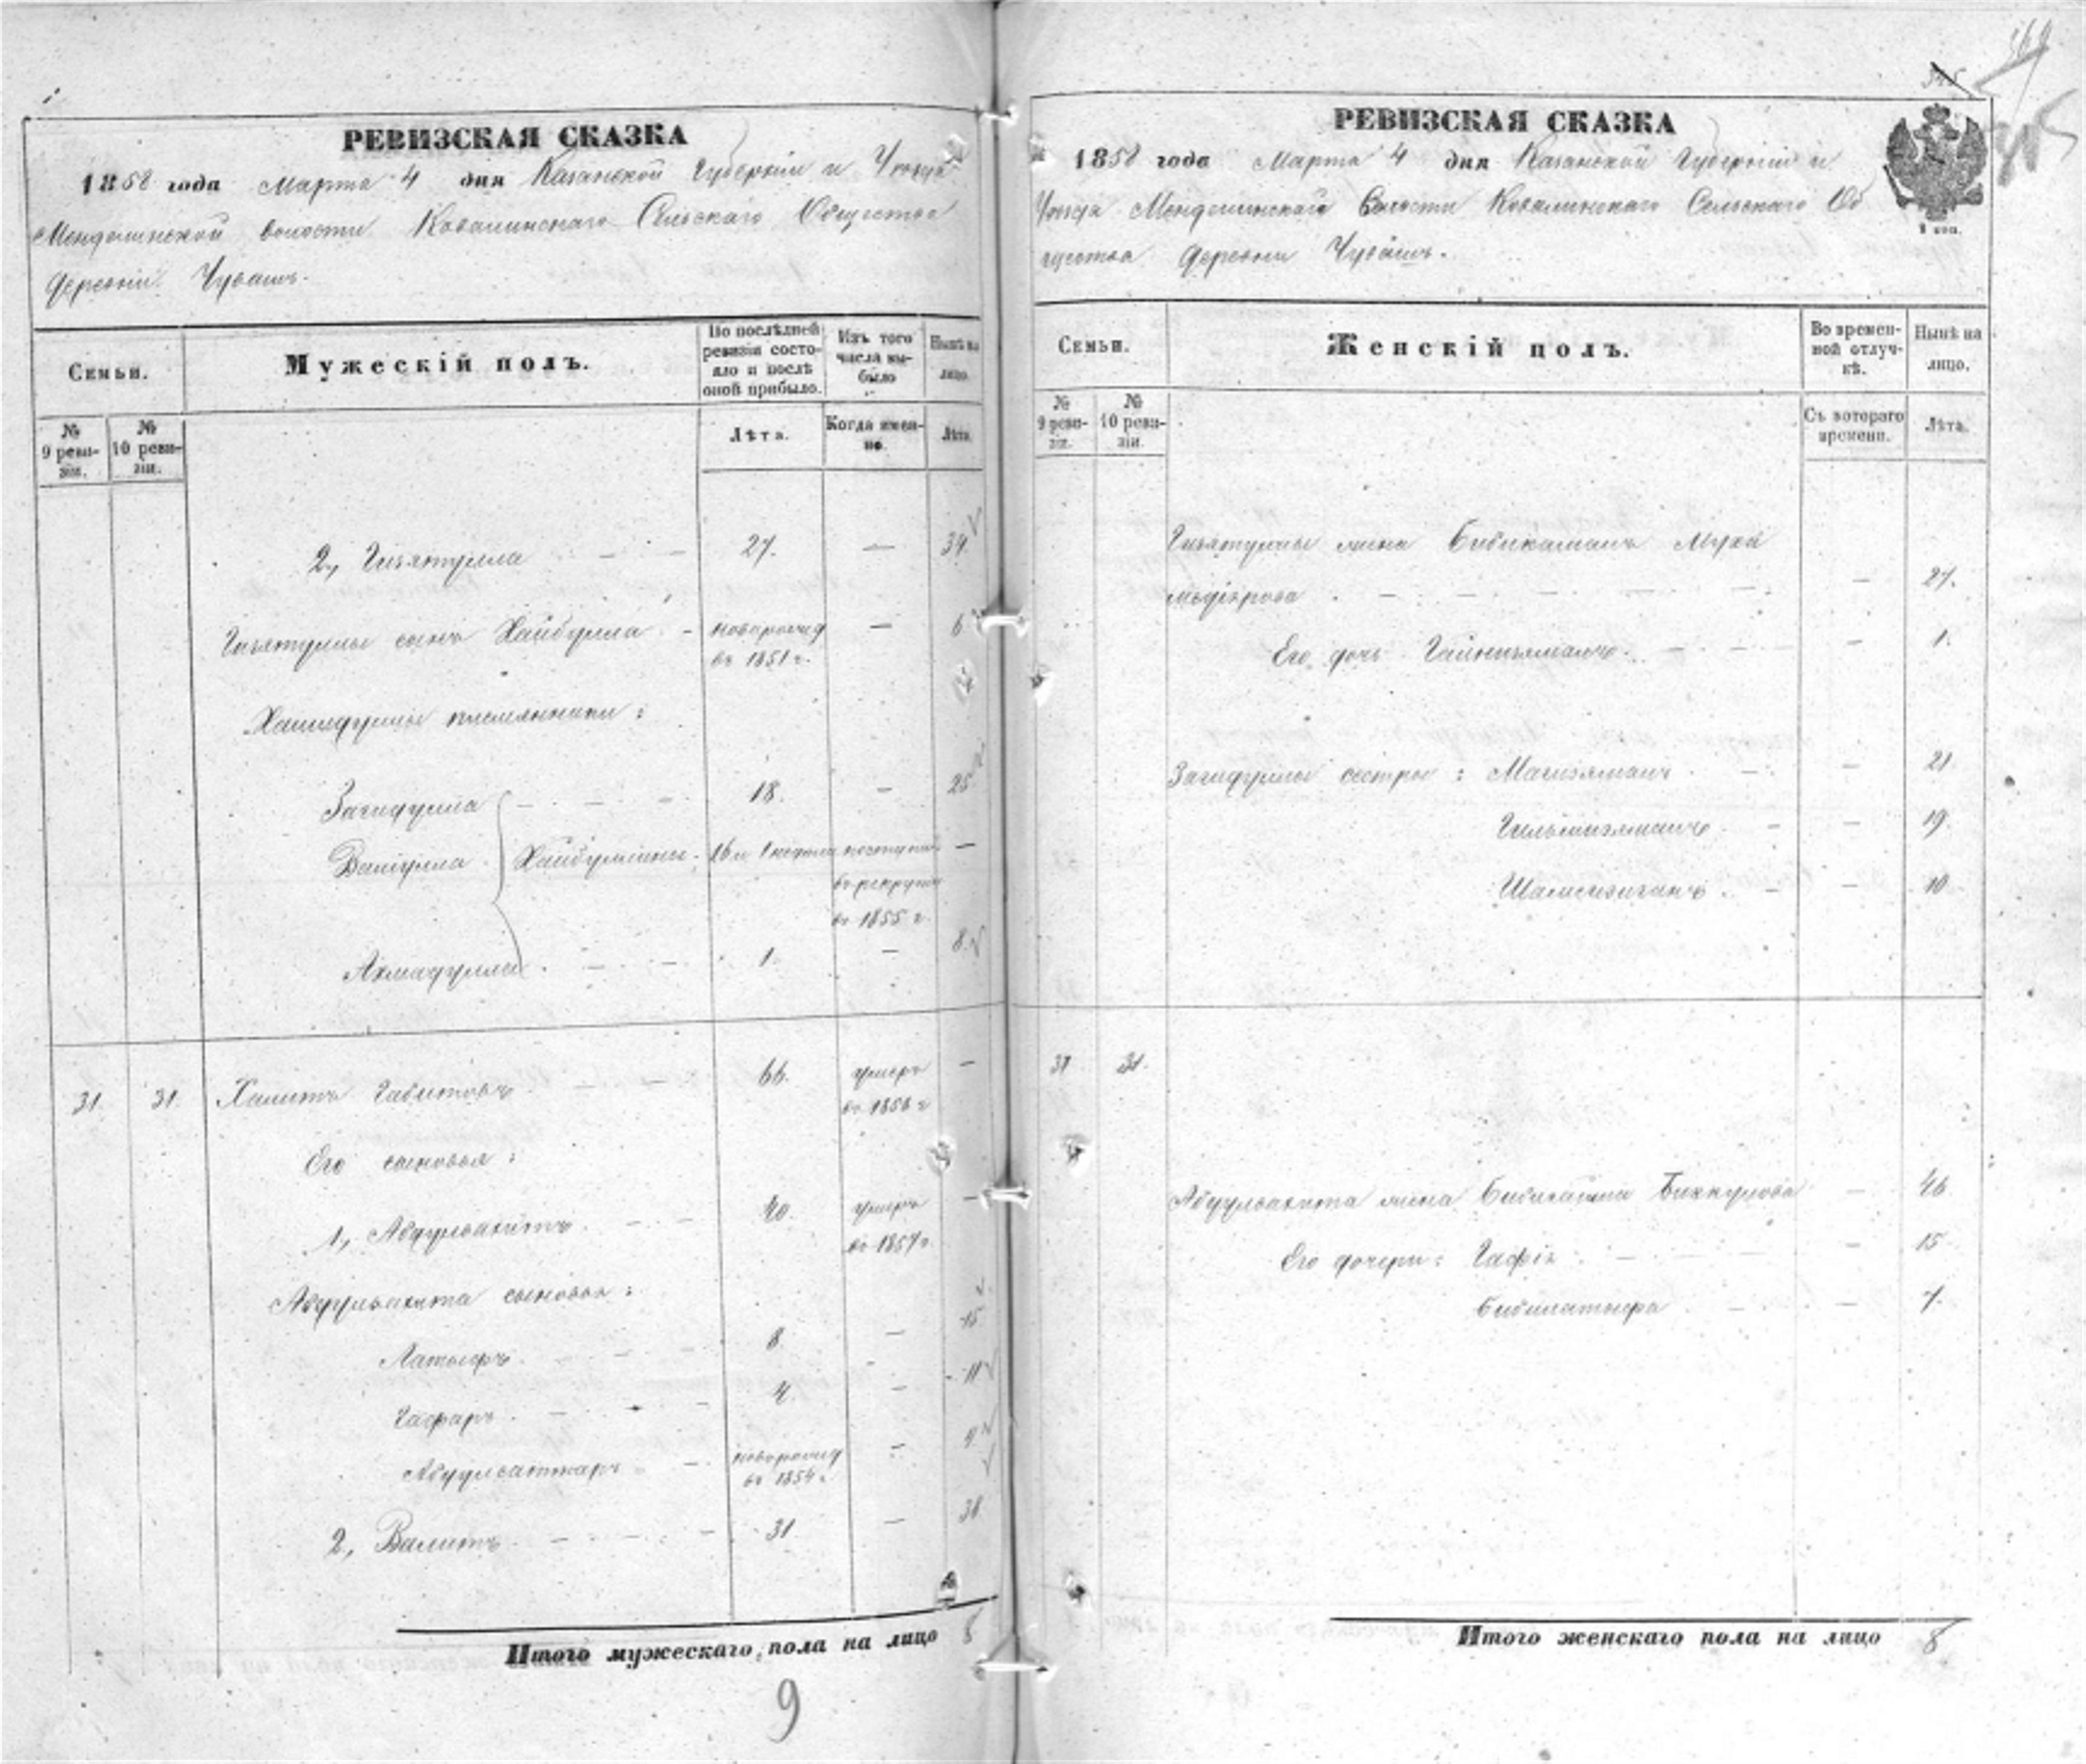 РЕВИЗСКАЯ СКАЗКА
1858 года Марта 4 дня Казанской Губерніи и Уезда
Менделинской волости Ковалинскаго Сельскаго Общества
деревни Чувашъ.
Семьи.
Мужескій полъ.
По послѣдней ревизіи состояло и послѣ оной прибыло.
Изъ того числа выбыло
Нынѣ на лицо.
№ 9 ревизіи.
№ 10 ревизіи.
Лѣта.
Когда именно.
Лѣта.
2, Гизятулла 27. — 34.
Гизятуллы сынъ Хайбулла - новорожд въ 1851 г. — 6
племянники:
Загидулла 18. — 25
Валіулла Хайбуллины. 16 и поступил въ рекруты въ 1855 г. —
Ахмадулла 1. — 8.
31. 31. Халитъ Габитовъ 66. умеръ въ 1856 г —
Его сыновья:
1, Абдулвахитъ 40. умеръ въ 1857 г. —
Абдулвахита сыновья:
Латыфъ 8 — 15
Гафаръ 4. — 11
Абдулсаттаръ новорожд въ 1854 г. — 4
2, Валитъ 31. — 38
Итого мужескаго пола на лицо 8
9
345
РЕВИЗСКАЯ СКАЗКА
1858 года Марта 4 дня Казанской Губерніи и
Уезда Менделинской Волости Ковалинскаго Сельскаго Об
щества деревни Чувашъ.
Семьи.
Женскій полъ.
Во временной отлучкѣ.
Нынѣ на лицо.
№ 9 ревизіи.
№ 10 ревизіи.
Съ котораго времени.
Лѣта.
Гизятуллы жена Бибикамалъ
— 27.
Его дочь — 1.
Загидуллы сестры: — 21
— 19.
— 10
31 31.
Абдулвахита жена Биккулова — 46
Его дочери: Гафія — 15
Бибилатыфа — 7.
Итого женскаго пола на лицо 8